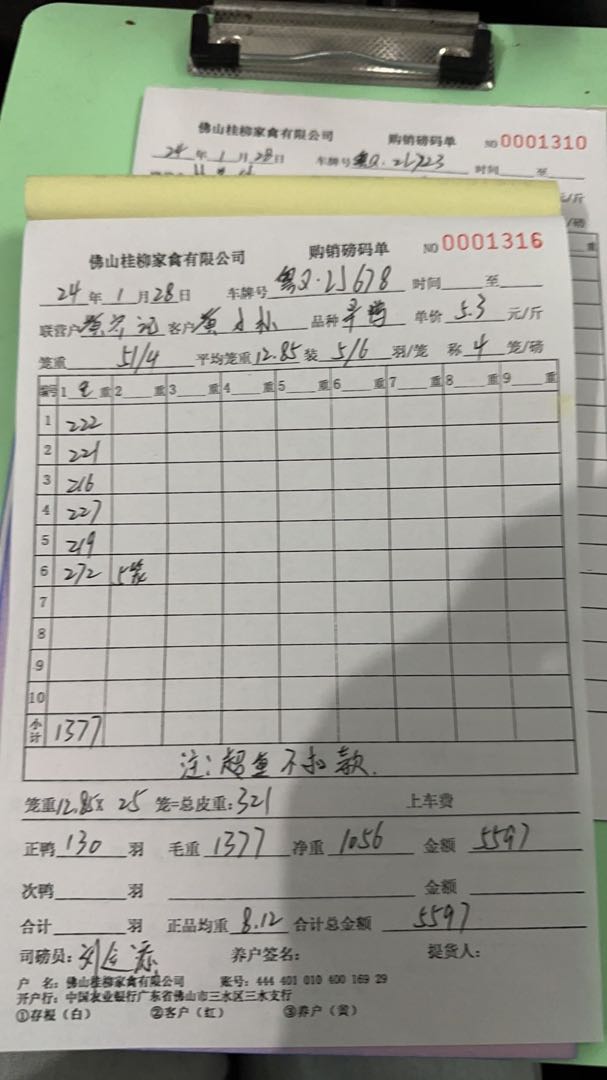 佛山桂柳家禽有限公司 购销磅码单 NO 0001310
24 年 1 月 28 日 车牌号 粤Q·21723 时间 至
元/斤
佛山桂柳家禽有限公司 购销磅码单 NO 0001316
24 年 1 月 28 日 车牌号 粤Q·25678 时间 至
联营户 客户 品种 单价 5.3 元/斤
笼重 51/4 平均笼重 12.85 装 5/6 羽/笼 称 4 笼/磅
编号 1 毛 重 2 重 3 重 4 重 5 重 6 重 7 重 8 重 9 重
1 222
2 221
3 216
4 227
5 219
6 272 5笼
7
8
9
10
小计 1377
注:超重不扣款.
笼重 12.85 × 25 笼=总皮重: 321 上车费
正鸭 130 羽 毛重 1377 净重 1056 金额 5597
次鸭 羽 金额
合计 羽 正品均重 8.12 合计总金额 5597
司磅员: 养户签名: 提货人:
户 名: 佛山桂柳家禽有限公司 账号: 444 401 010 400 169 29
开户行: 中国农业银行广东省佛山市三水区三水支行
①存根(白) ②客户(红) ③养户(黄)